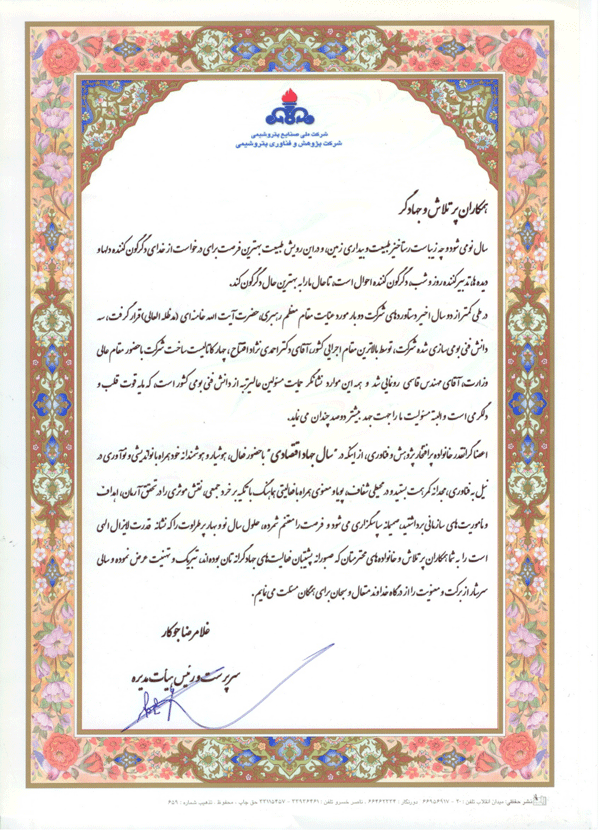 شرکت ملی صنایع پتروشیمی
شرکت پژوهش و فناوری پتروشیمی
همکاران پر تلاش و جهادگر
سال نو می شود و چه زیباست رستاخیز طبیعت و بیداری زمین، و در این رویش طبیعت بهترین فرصت برای درخواست از خدای دگرگون کننده دلها و
دیده ها، تدبیر کننده روز و شب، دگرگون کننده احوال است، تا حال ما را به بهترین حال دگرگون کند.
در طی کمتر از دو سال اخیر دستاوردهای شرکت دوبار مورد عنایت مقام معظم رهبری، حضرت آیت الله خامنه ای (مدظله العالی) قرار گرفت، سه
دانش فنی بومی سازی شده شرکت، توسط بالاترین مقام اجرایی کشور، آقای دکتر احمدی نژاد افتتاح، چهار کاتالیست ساخت شرکت با حضور مقام عالی
وزارت، آقای مهندس قاسمی رونمایی شد و همه این موارد نشانگر حمایت مسئولین عالیرتبه از دانش فنی بومی کشور است، که مایه قوت قلب و
دلگرمی است و البته مسئولیت ما را جهت جهد بیشتر دو صد چندان می نماید.
اعضا گرانقدر خانواده پر افتخار پژوهش و فناوری، از اینکه در "سال جهاد اقتصادی" با حضور فعال، هوشیار و هوشمندانه خود همراه با نواندیشی و نوآوری در
نیل به فناوری، مجدانه کمر همت بستید و در محیطی شفاف، پویا و معنوی همراه با فعالیتی هماهنگ با تکیه بر خرد جمعی، نقش موثری را در تحقق آرمان، اهداف
و ماموریت های سازمانی برداشتید، صمیمانه سپاسگزاری می شود و فرصت را مغتنم شمرده، حلول سال نو و بهار پر طراوت را که نشانه قدرت لایزال الهی
است را به شما همکاران پر تلاش و خانواده های محترمتان که صبورانه پشتیبان فعالیت های جهادگرانه تان بوده اند، تبریک و تهنیت عرض نموده و سالی
سرشار از برکت و معنویت را از درگاه خداوند متعال و سبحان برای همگان مسئلت می نمایم.
غلامرضا جوکار
سرپرست و رئیس هیأت مدیره
نشر حفظی: میدان انقلاب تلفن: ۲۰ - ۶۶۹۵۶۹۱۷ دورنگار: ۶۶۴۶۲۲۲۴ ناصر خسرو تلفن: ۳۳۹۲۶۴۶۱ - ۳۳۱۱۵۳۵۷ حق چاپ محفوظ - تذهیب شماره: ۶۵۹